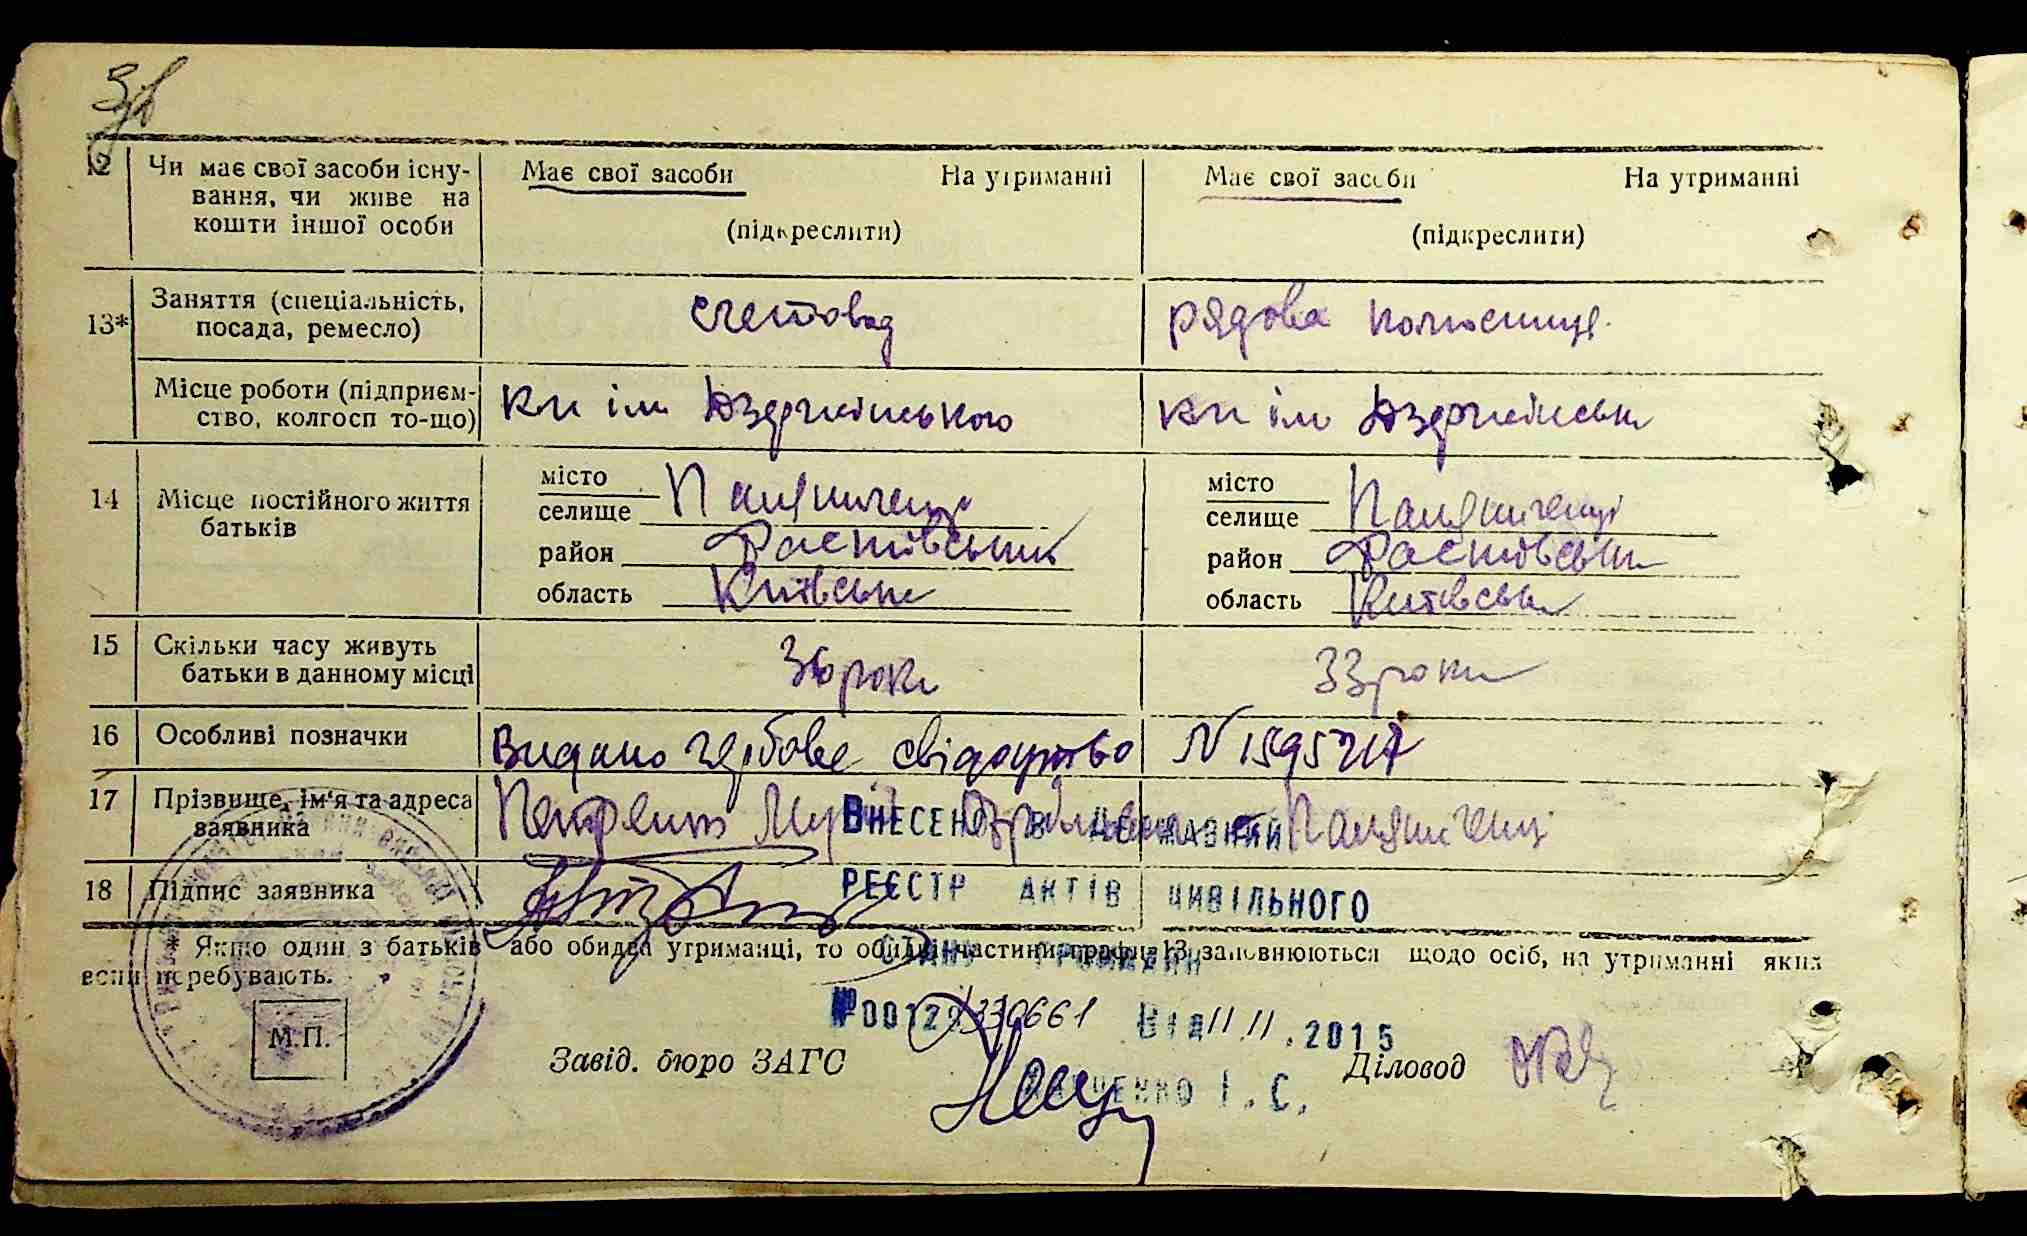 12 Чи має свої засоби існу- Має свої засоби На утриманні Має свої засоби На утриманні
вання, чи живе на
кошти іншої особи (підкреслити) (підкреслити)
13* Заняття (спеціальність, счетовод рядова колгоспниця
посада, ремесло)
Місце роботи (підприєм- кп ім Дзержинського кп ім Дзержинськ
ство, колгосп то-що)
14 Місце постійного життя місто місто
батьків селище селище
район Фастівський район Фастівськи
область Київськ область Київськ
15 Скільки часу живуть 36 роки 33 роки
батьки в данному місці
16 Особливі позначки Видано гербове свідоцтво N 1595217
17 Прізвище, ім'я та адреса
заявника
18 Підпис заявника
ВНЕСЕНО В ДЕРЖАВНИЙ
РЕЄСТР АКТІВ ЦИВІЛЬНОГО
СТАНУ ГРОМАДЯН
* Якщо один з батьків або обидва утриманці, то обидві частини графи 13 заповнюються щодо осіб, на утриманні яких
вони перебувають.
№0012 330661 Від 11.11.2015
М.П.
Завід. бюро ЗАГС Діловод
І.С.